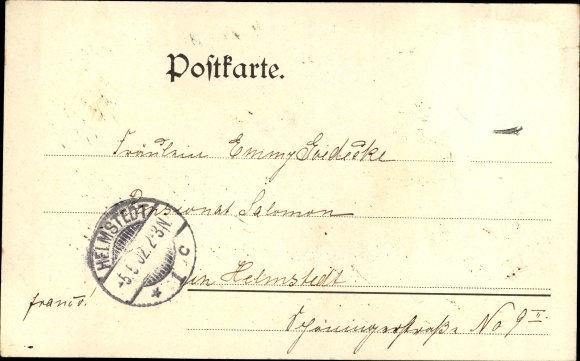 Postkarte.
Fräulein Emmy Goedecke
Pensionat Salomon
in Helmstedt
franco!
Schöningerstraße No 9 II
HELMSTEDT
* 1 c